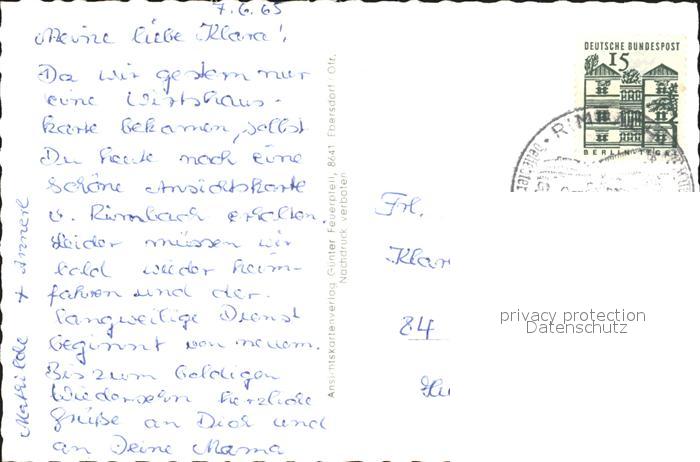 7.6.65
Meine liebe Klara!
Da wir gestern nur
eine Wirtshaus-
karte bekamen, sollst
Du heute noch eine
schöne Ansichtskarte
v. Rimbach erhalten.
Leider müssen wir
bald wieder heim-
fahren und der
langweilige Dienst
beginnt von neuem.
Bis zum baldigen
Wiedersehn herzliche
Grüße an Dich und
an Deine Mama
Mathilde + Annerl
Ansichtskartenverlag Günter Feuerpfeil, 8641 Ebersdorf / Ofr.
Nachdruck verboten
DEUTSCHE BUNDESPOST
15
BERLIN-TEGEL
Frl.
Klar
84
privacy protection
Datenschutz